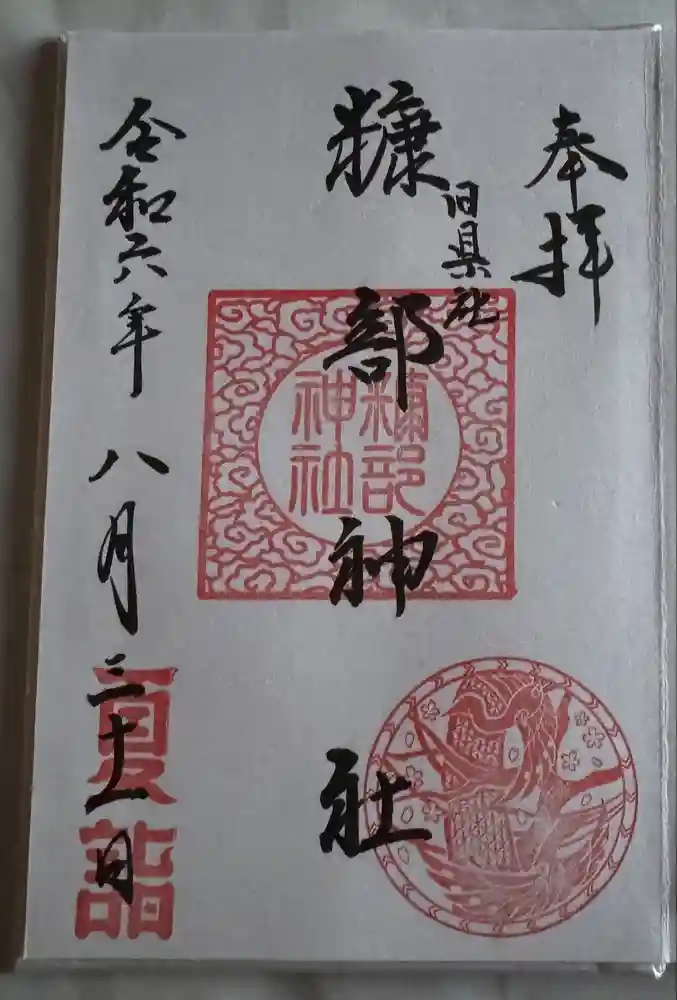 奉拝
旧県社
糠部神社
糠部
神社
令和六年八月三十一日
夏詣